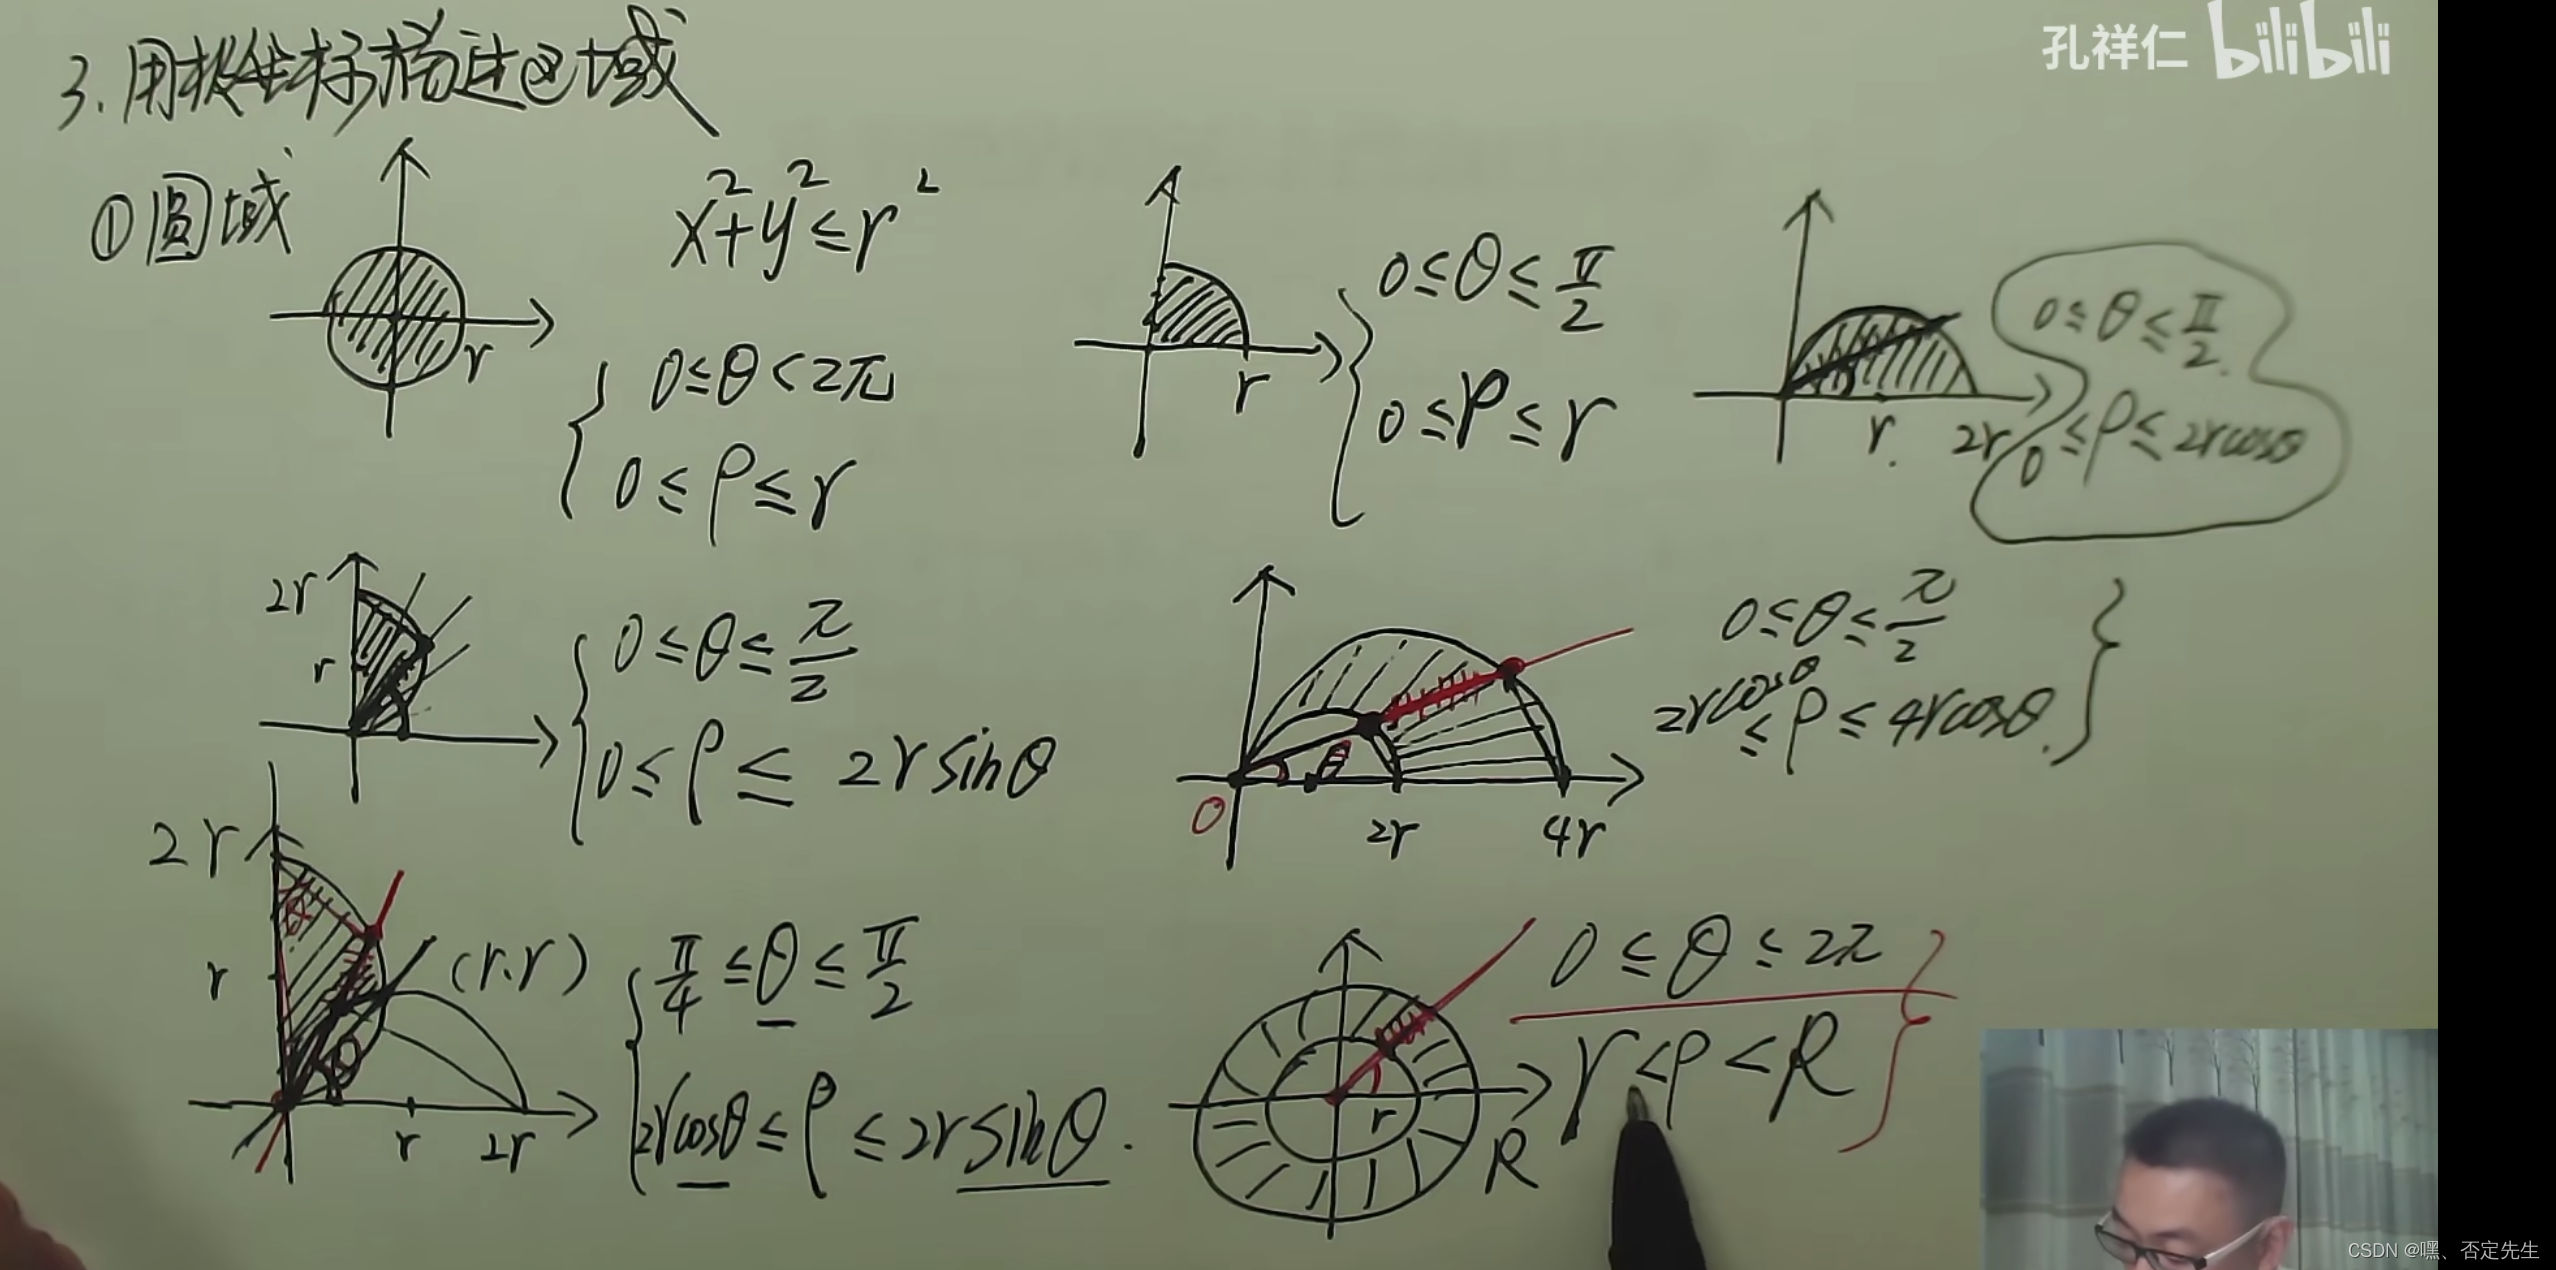 3.用极坐标描述区域
孔祥仁 bilibili
①圆域
r
x²+y²≤r²
0≤θ<2π
0≤ρ≤r
r
0≤θ≤π/2
0≤ρ≤r
r. 2r
0≤θ≤π/2.
0≤ρ≤2rcosθ
2r
r
0≤θ≤π/2
0≤ρ≤2rsinθ
θ
0 2r 4r
0≤θ≤π/2
2rcosθ≤ρ≤4rcosθ.
2r
r
(r.r)
θ
r 2r
π/4≤θ≤π/2
2rcosθ≤ρ≤2rsinθ.
r
R
0≤θ≤2π
r<ρ<R
CSDN @嘿、否定先生